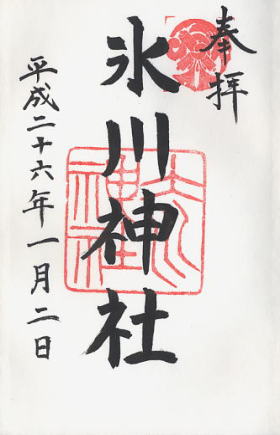 奉拝
氷川神社
平成二十六年一月二日